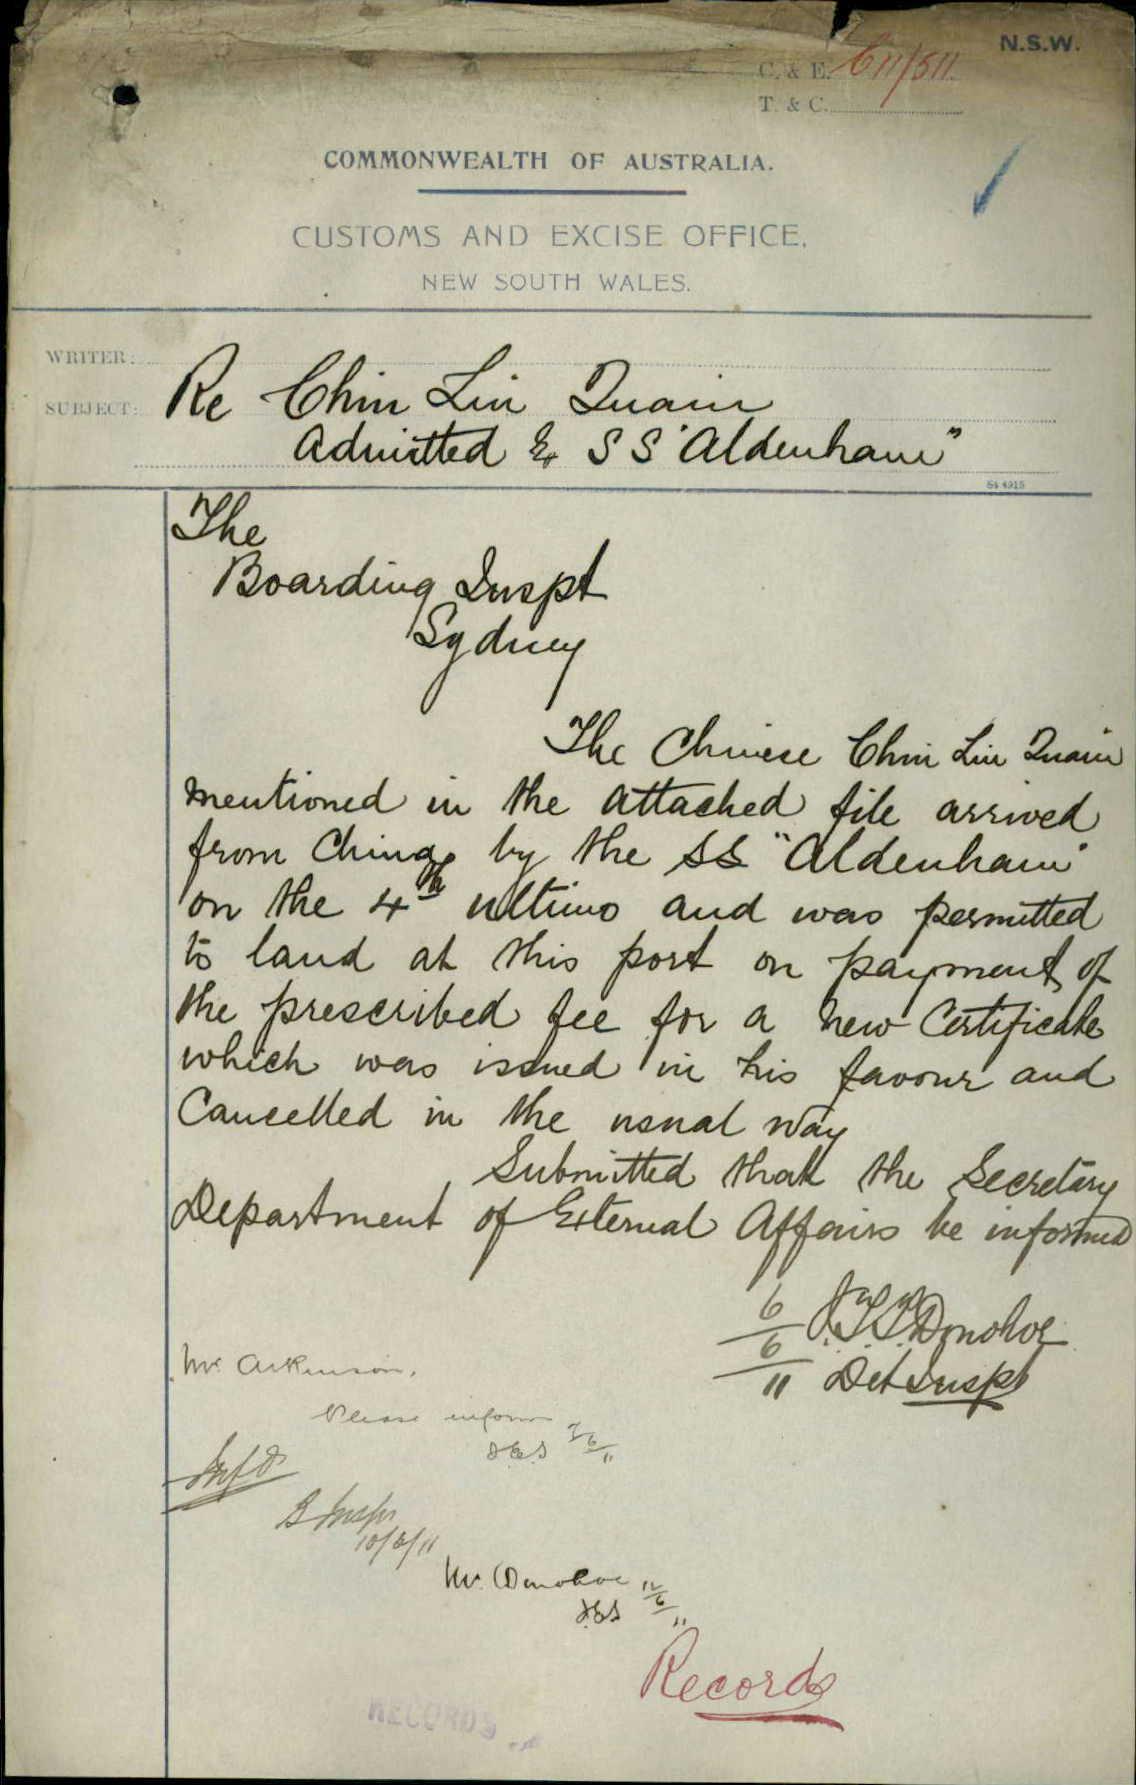 N.S.W.
C. & E. C11/511.
T. & C.
COMMONWEALTH OF AUSTRALIA.
CUSTOMS AND EXCISE OFFICE.
NEW SOUTH WALES.
WRITER:
SUBJECT: Re Chin Lin Quain
Admitted Ex S S "Aldenham"
The
Boarding Inspt
Sydney
The Chinese Chin Lin Quain
mentioned in the attached file arrived
from China by the SS "Aldenham"
on the 4th ultimo and was permitted
to land at this port on payment of
the prescribed fee for a new Certificate
which was issued in his favour and
Cancelled in the usual way
Submitted that the Secretary
Department of External Affairs be informed
6/6/11 Donohoe
Det Inspt
Mr. Atkinson.
Please inform
Infd
B Inspr
10/6/11
Mr. Donohoe 12/6/11
Records
RECORDS